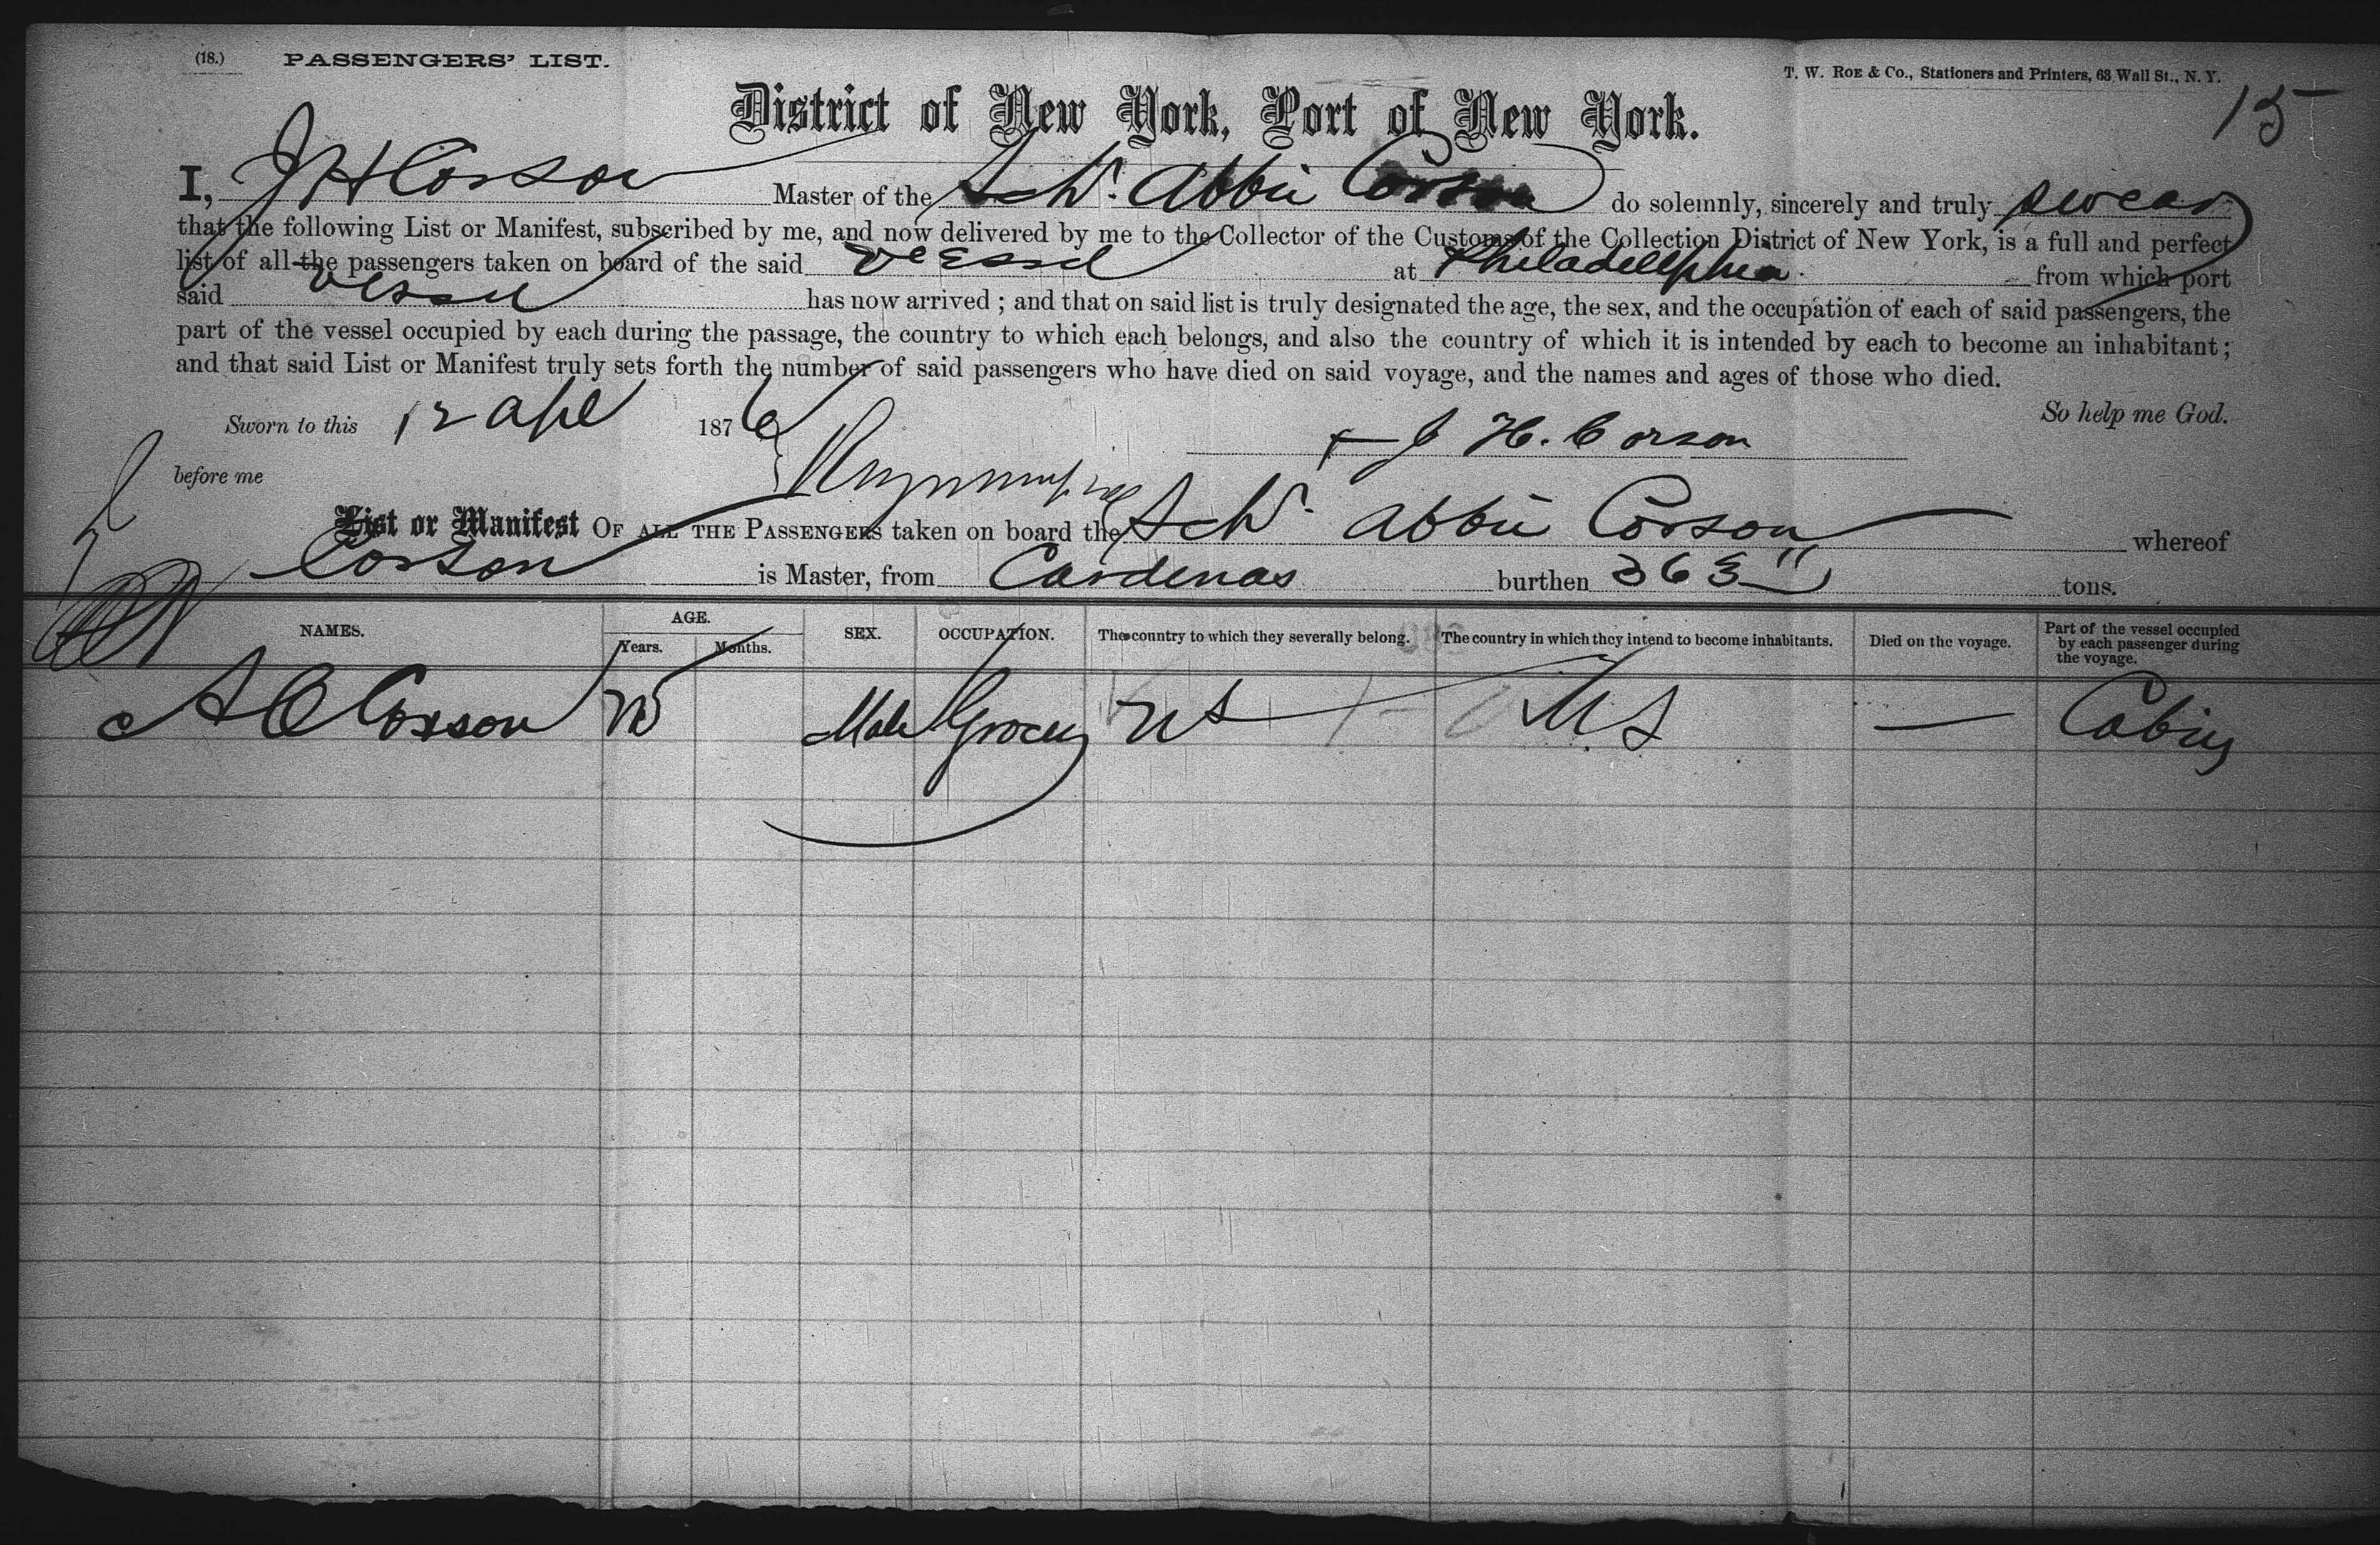 (18.) PASSENGERS' LIST.
T. W. ROE & Co., Stationers and Printers, 63 Wall St., N. Y.
15
District of New York, Port of New York.
I, J H Corson Master of the Schr. Abbie Corson do solemnly, sincerely and truly swear
that the following List or Manifest, subscribed by me, and now delivered by me to the Collector of the Customs of the Collection District of New York, is a full and perfect
list of all the passengers taken on board of the said vessel at Philadellphia from which port
said vessel has now arrived; and that on said list is truly designated the age, the sex, and the occupation of each of said passengers, the
part of the vessel occupied by each during the passage, the country to which each belongs, and also the country of which it is intended by each to become an inhabitant;
and that said List or Manifest truly sets forth the number of said passengers who have died on said voyage, and the names and ages of those who died.
So help me God.
Sworn to this 12 apl 1876
J H. Corson
before me
List or Manifest OF ALL THE PASSENGERS taken on board the Schr. Abbie Corson whereof
Corson is Master, from Cardenas burthen 363 tons.
NAMES. AGE. Years. Months. SEX. OCCUPATION. The country to which they severally belong. The country in which they intend to become inhabitants. Died on the voyage. Part of the vessel occupied by each passenger during the voyage.
A C Corson Male Grocer US US — Cabin